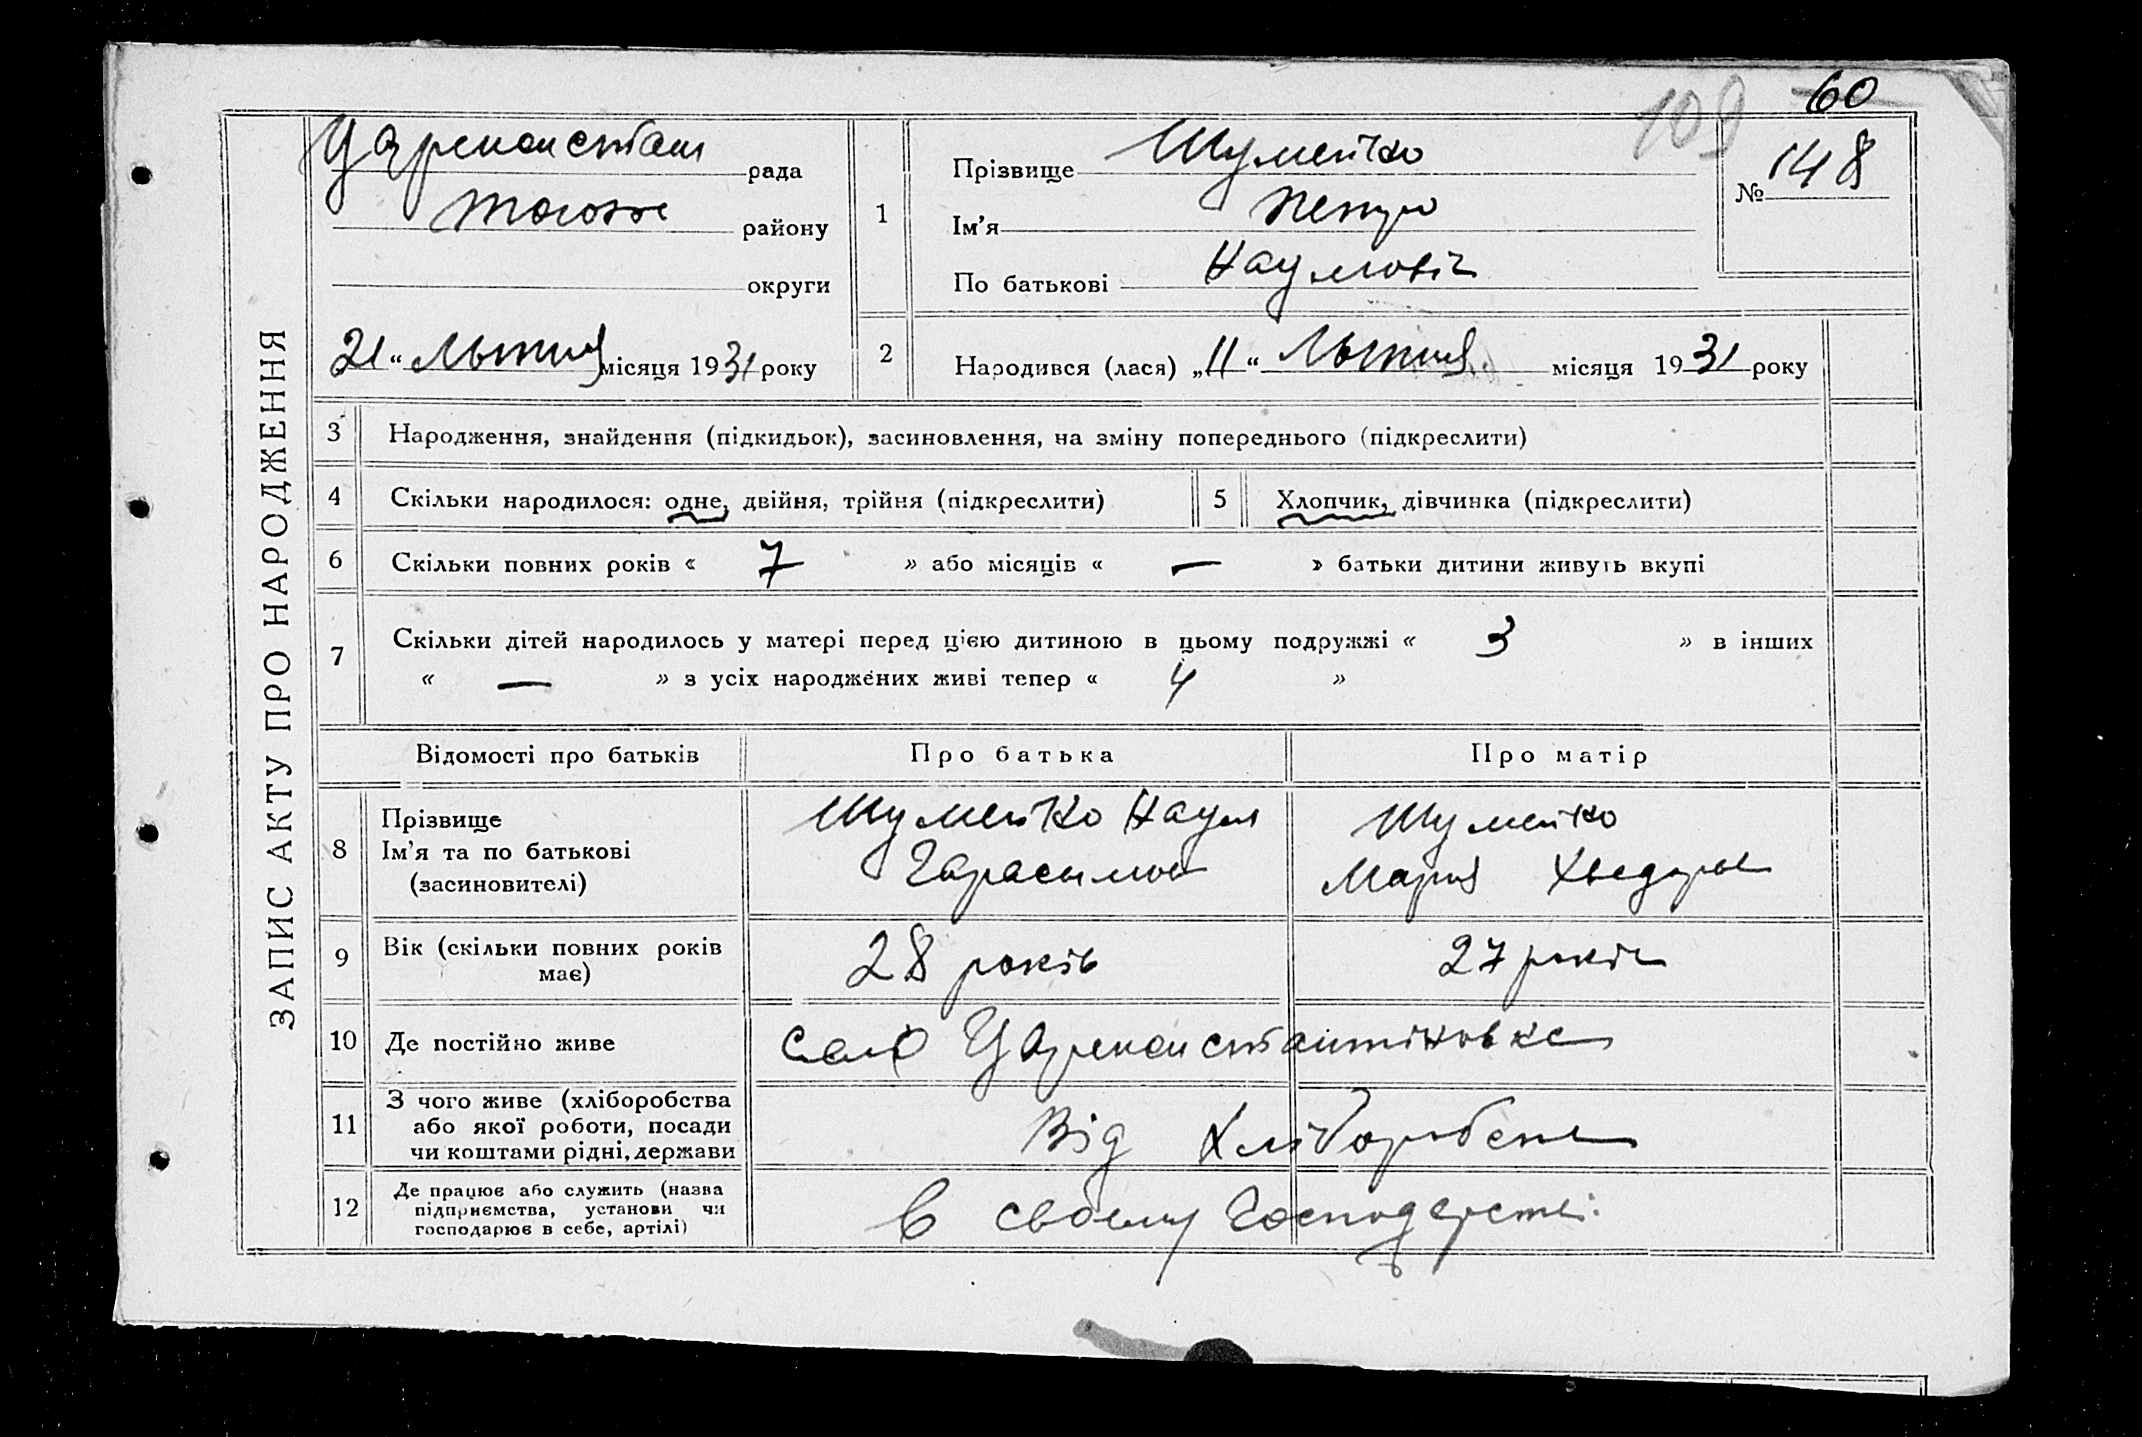 60
109
ЗАПИС АКТУ ПРО НАРОДЖЕННЯ
Цареконстан рада
району
округи
21 “ Лютня місяця 1931 року
1
Прізвище Шумейко
Ім’я Петро
По батькові Наумовіч
№ 148
2
Народився (лася) „11“ Лютня місяця 1931 року
3 Народження, знайдення (підкидьок), засиновлення, на зміну попереднього (підкреслити)
4 Скільки народилося: одне, двійня, трійня (підкреслити)
5 Хлопчик, дівчинка (підкреслити)
6 Скільки повних років « 7 » або місяців « — » батьки дитини живуть вкупі
7 Скільки дітей народилось у матері перед цією дитиною в цьому подружжі « 3 » в інших
« — » з усіх народжених живі тепер « 4 »
Відомості про батьків
Про батька
Про матір
8
Прізвище
Ім’я та по батькові
(засиновителі)
Шумейко Наум
Гарасимов
Шумейко
Мария Хведоров
9
Вік (скільки повних років
має)
28 років
27 років
10 Де постійно живе
село Цареконстантіновка
11
З чого живе (хліборобства
або якої роботи, посади
чи коштами рідні, держави
Від Хліборобства
12
Де працює або служить (назва
підприємства, установи чи
господарює в себе, артілі)
в своему Господарстві